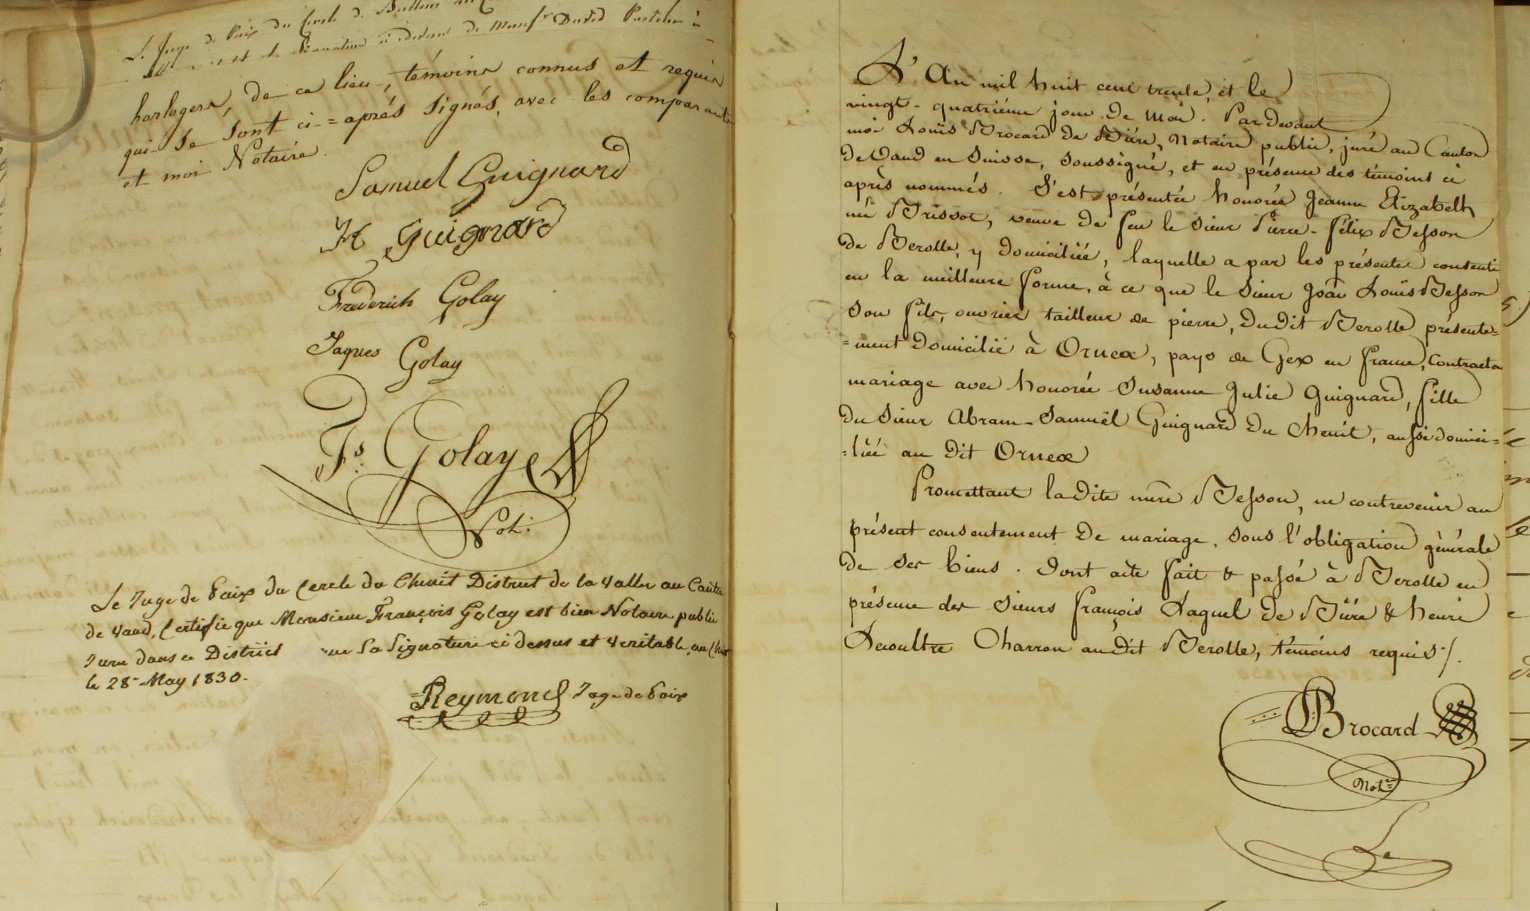 Le Juge de Paix du Cercle de
horlogers, de ce lieu, témoins connus et requis
qui se sont ci-=après signés, avec les comparants
et moi Notaire.
Samuel Guignard
H Guignard
Frederich Golay
Jaques Golay
Fs. Golay
Not:
Le Juge de Paix du Cercle du Chenit District de la Vallée au Canton
de Vaud, Certifie que Monsieur François Golay est bien Notaire public
Juré dans ce District que la Signature ci dessus et Veritable, au Chenit
le 28 May 1830.
Reymond Juge de Paix
L'An mil huit cent trente, et le
vingt-quatrième jour de Mai. Par devant
moi Louis Brocard de Bière, Notaire public, juré au Canton
de Vaud en Suisse, soussigné, et en présence des témoins ci
après nommés. S'est présentée honorée Jeanne Elizabeth
née Brissot, veuve de feu le Sieur Pierre-félix Besson
de Berolle, y domiciliée, laquelle a par les présentes consenti
en la meilleure forme, à ce que le Sieur Jean Louis Besson
son fils, ouvrier tailleur de pierre, dudit Berolle, présente=
=ment domicilié à Ornex, pays de Gex en france, Contracte
mariage avec honorée Susanne Julie Guignard, fille
du Sieur Abram-Samuël Guignard du Chenit, aussi domici=
=liée au dit Ornex
Promettant ladite mère Besson, ne contrevenir au
présent consentement de mariage, sous l'obligation générale
de ses biens. Dont acte fait & passé à Berolle en
présence des Sieurs françois Laquel de Bière & henri
Lecoultre Charron audit Berolle, témoins requis ./.
Brocard
Notre
Le